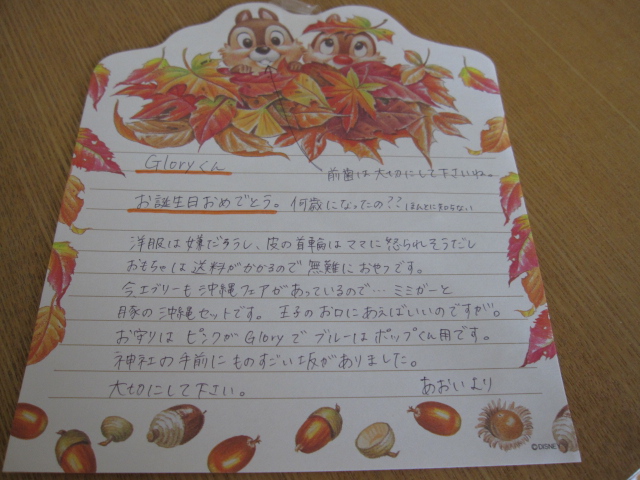 Gloryくん
前歯は大切にして下さいね。
お誕生日おめでとう。何歳になったの?? ほんとに知らない
洋服は嫌だろうし、皮の首輪はママに怒られそうだし
おもちゃは送料がかかるので無難におやつです。
今エブリーも沖縄フェアがあっているので…ミミガーと
豚の沖縄セットです。王子のお口にあえばいいのですが。
お守りはピンクがGloryでブルーはポップくん用です。
神社の手前にものすごい坂がありました。
大切にして下さい。 あおいより
©DISNEY